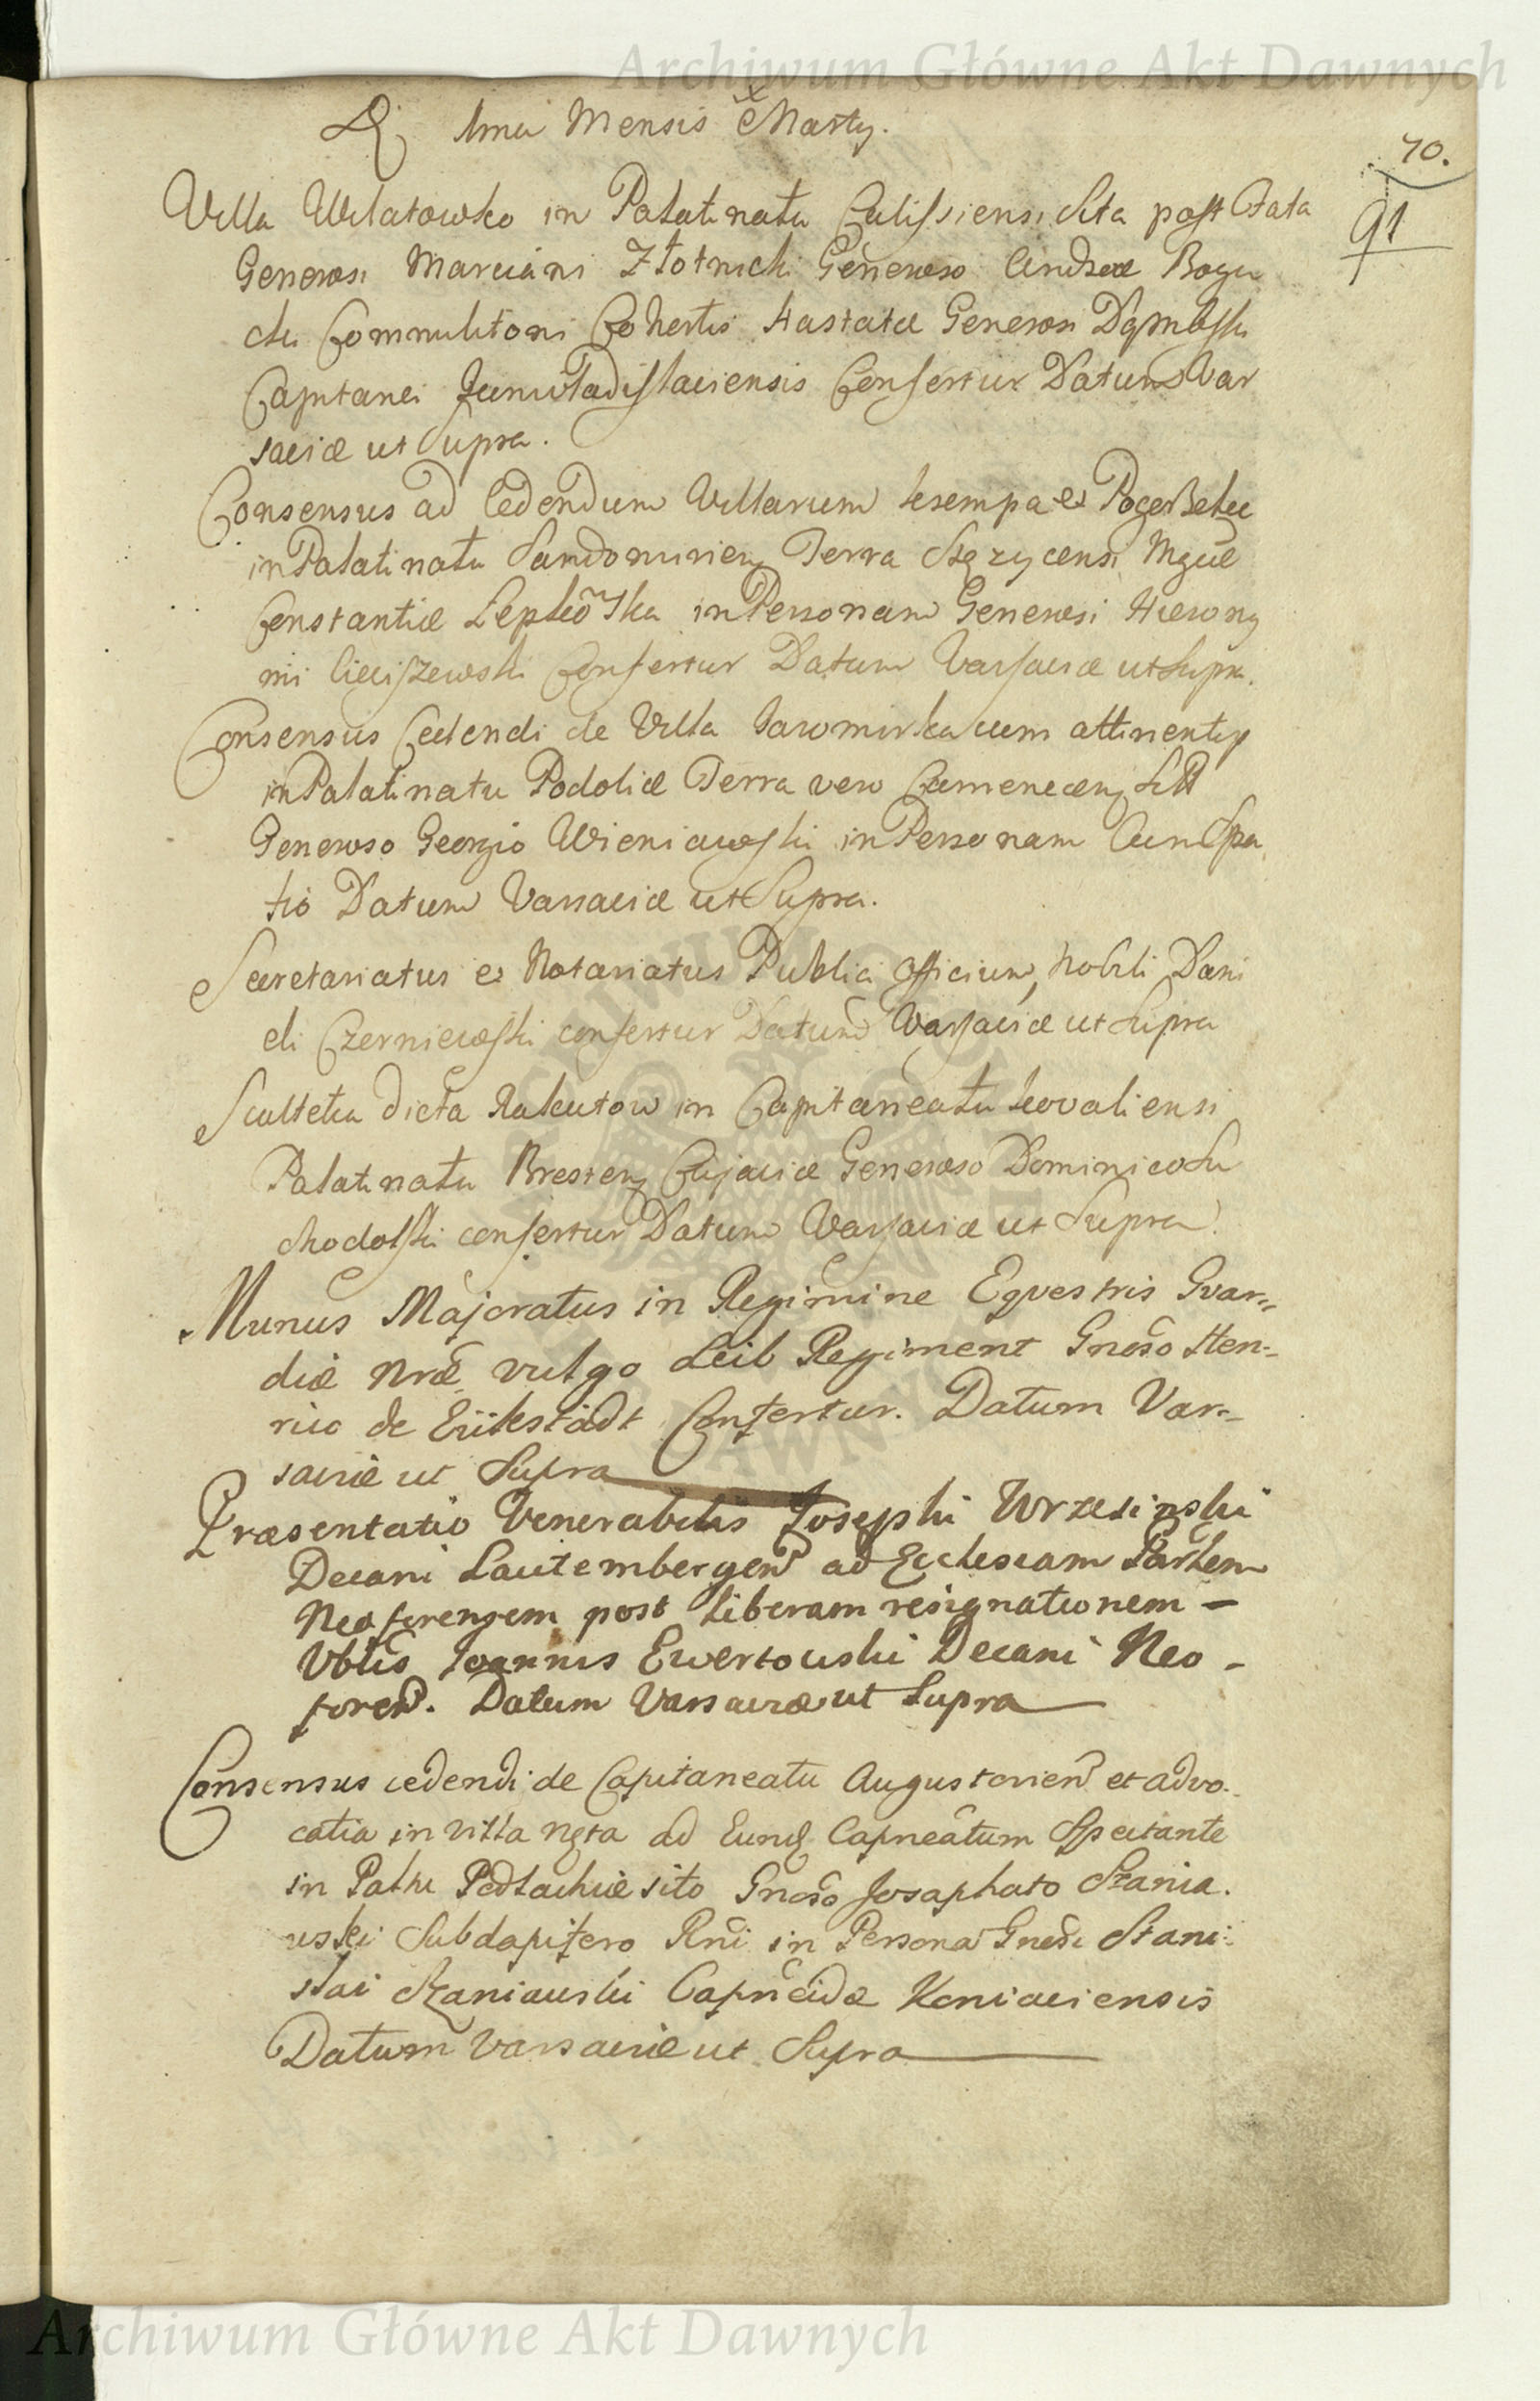 Archiwum Główne Akt Dawnych
Di 1ma Mensis Martij.
70.
91
Villa Wilatowko in Palatinatu Calissiensi Sita post Fata
Generosi Marciani Złotnicki Generoso Andreæ Bogu
cki Commilitoni Cohortis Hastatæ Generosi Dąmbski
Capitanei Juniwladislaviensis Confertur Datum Var
saviæ ut Supra.
Consensus ad Cedendum Villarum Kempa et
in Palatinatu Sandomirien Terra Stęzycensi Mgcæ
Constantiæ in Personam Generosi Hierony
mi Cieciszewski Confertur Datum Varsaviæ ut Supra.
Consensus Cedendi de Villa Jaromirka cum attinentijs
in Palatinatu Podoliæ Terra vero Camenecen
Generoso Georgio Wieniawski in Personam Cun Spa
tio Datum Varsaviæ ut Supra.
Secretariatus et Notariatus Publici Officium, Nobili Dani
eli Czerniewski confertur Datum Varsaviæ ut Supra
Scultetia dicta Rakutow in Capitaneatu Kovaliensi
Palatinatu Bresten Cujaviæ Generoso Dominico Su
chodolski confertur Datum Varsaviæ ut Supra.
Munus Majoratus in Regimine Eqvestris Gvar=
diæ nræ vulgo Leib Regiment Gnoso Hen=
rico de Eükstädt Confertur. Datum Var=
saviæ ut Supra
Præsentatio Venerabilis Josephi Wrzesinski
Decani Lautembergen ad Ecclesiam Parlem
Neoforensem post Liberam resignationem –
Vblis Joannis Ewertowski Decani Neo -
foren. Datum Varsaviæ ut Supra
Consensus cedendi de Capitaneatu Augustovien et advo.
catia in villa ngra ad Eund Capneatum Spectante
in Pattu Podlachiæ sito Gnoso Josaphato Szania.
wski Subdapifero Rni in Persona Gnosi Stani:
slai Szaniawski Capneidæ Koniaciensis
Datum Varsaviæ ut Supra
Archiwum Główne Akt Dawnych